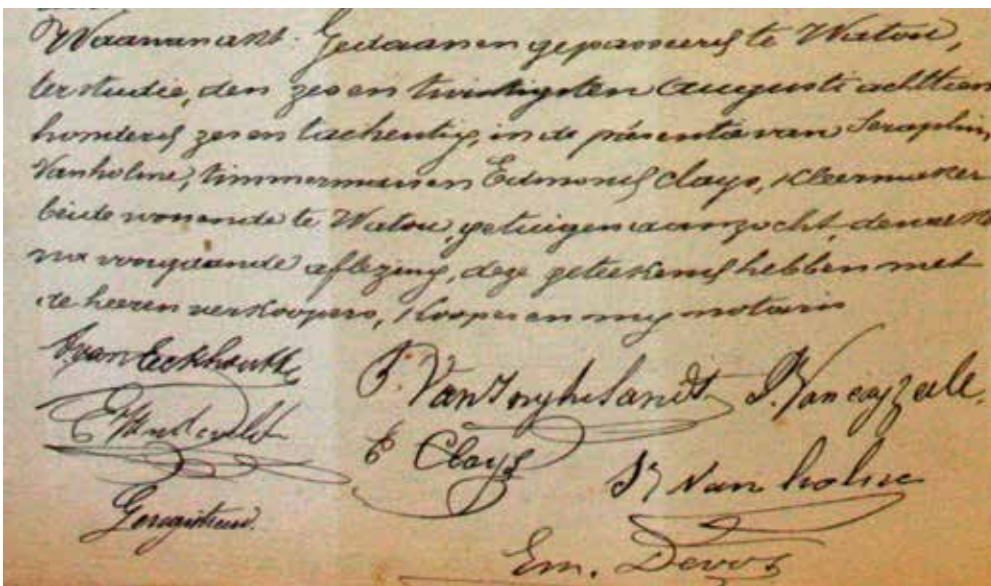 Waarvan akt. Gedaan en gepasseerd te Watou,
ter studie, den zes en twintigsten Auguste achttien
honderd zes en tachentig, in de presentie van Seraphin
Vanholme, timmerman en Edmond Clays, kleermaker
beide wonende te Watou, getuigen aanzocht, dewelke
na voorgaande aflezing, deze geteekend hebben met
de heeren verkoopers, kooper en my notaris
J. van Eeckhoutte
P. Van Inghelandt J. Van cayzeele.
E Clays
S Van holme
Geregistreerd.
Em. Devos